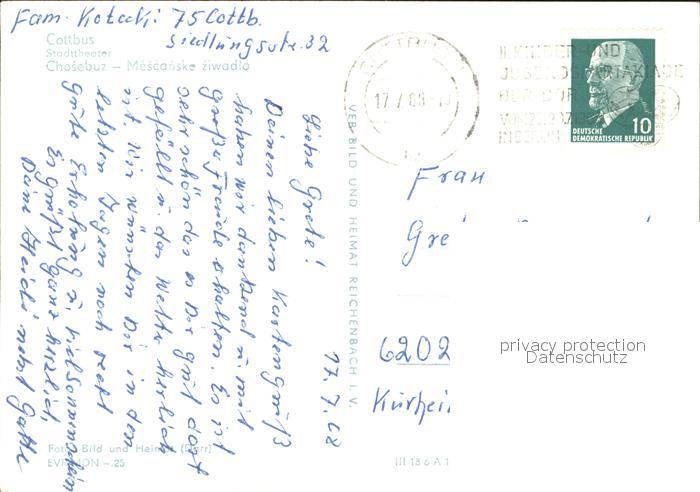 Fam. Kotacki 75 Cottb.
Siedlungsstr. 32
Cottbus
Stadttheater
Chośebuz – Měsćańske źiwadło
17.7.68
Liebe Grete!
Deinen lieben Kartengruß
haben wir dankend u. mit
großer Freude erhalten. Es ist
sehr schön das es Dir gut dort
gefällt u. das Wetter herrlich
ist. Wir wünschen Dir in den
letzten Tagen noch recht
gute Erholung u. viel Sonnenschein
Es grüßt ganz herzlich
Deine Heidi nebst Gatte
Foto: Bild und Heimat (Darr)
EVP MDN –.25
III 18 6 A 1
VEB BILD UND HEIMAT REICHENBACH I. V.
II. KINDER-UND
JUGENDSPARTAKIADE
DER DDR
IN BERLIN
17.7.68
10
DEUTSCHE
DEMOKRATISCHE REPUBLIK
Frau
Gre
6202
Kurhei
privacy protection
Datenschutz